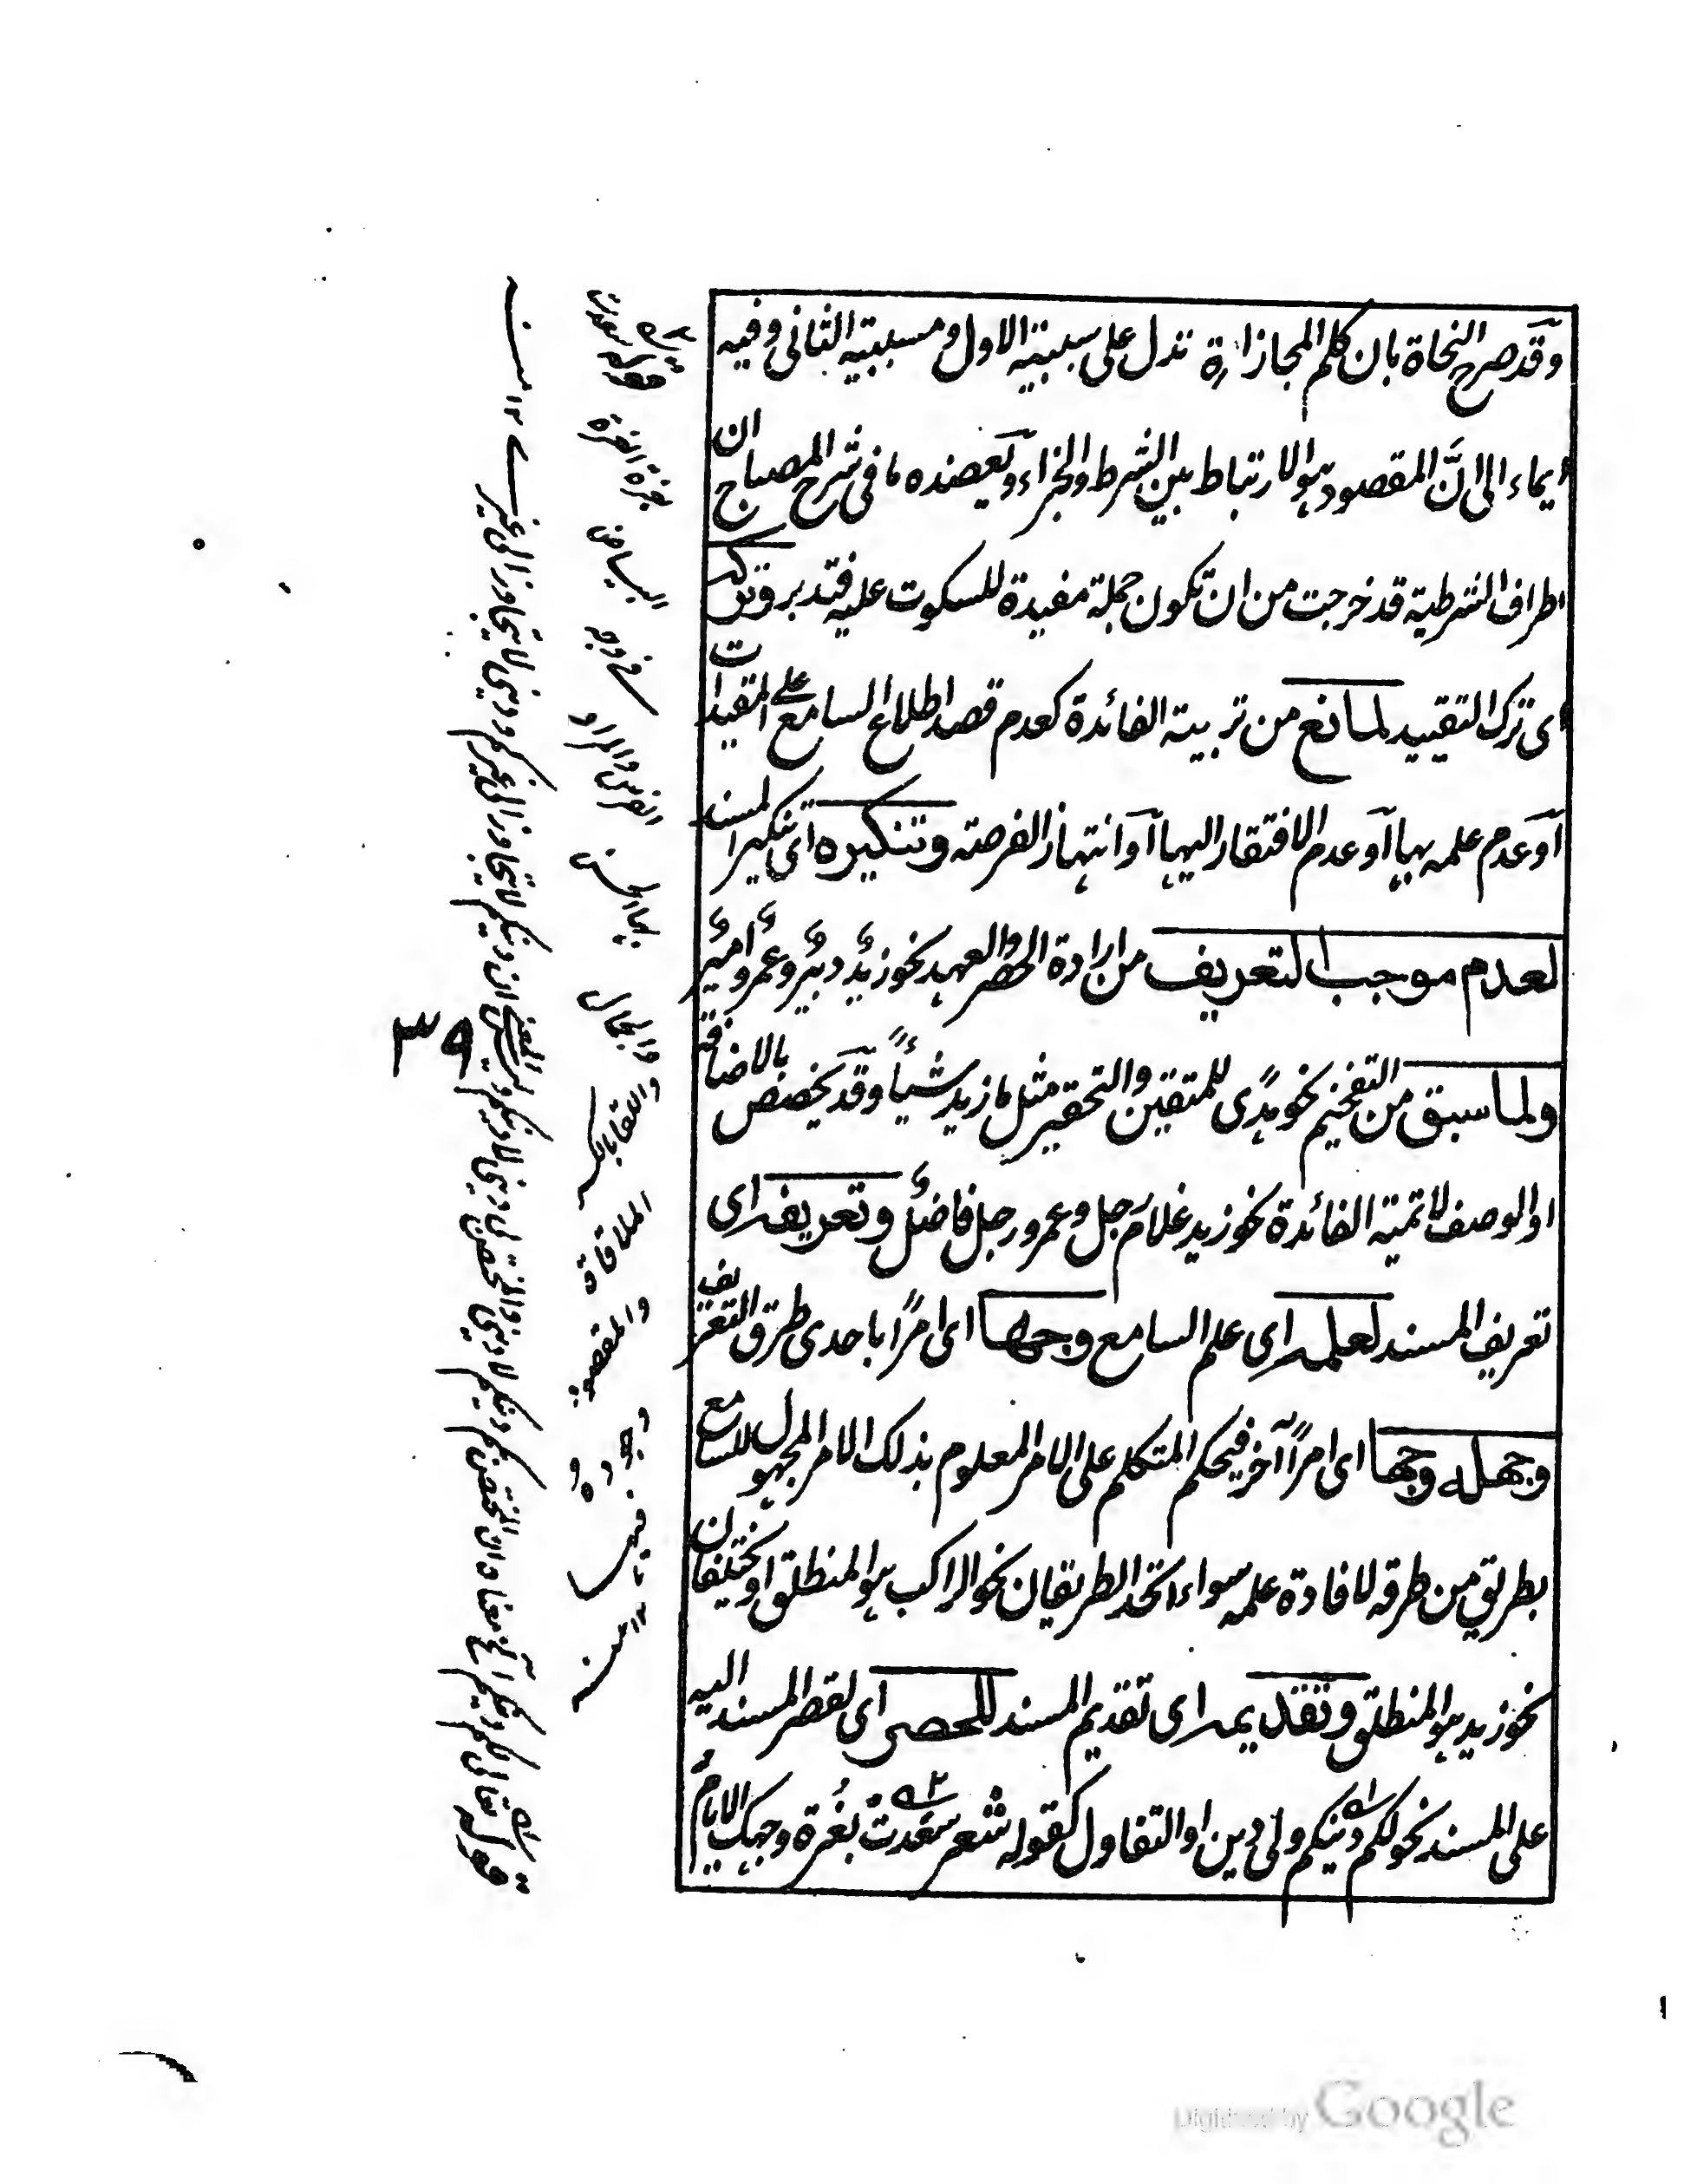 وقد صرح النحاة بان كلم المجازاة تدل على سببية الاول ومسببية الثانى وفيه
ايماء الى ان المقصود هو الارتباط بين الشرط والجزاء ويعضده ما فى شرح المصباح ان
اطراف الشرطية قد خرجت من ان تكون جملة مفيدة للسكوت عليه فتدبر وتركه
اى ترك التقييد لمانع من تربية الفائدة كعدم قصد اطلاع السامع على المقيدات
او عدم علمه بها او عدم الافتقار اليها او انتهاز الفرصة وتنكيره اى تنكير المسند
لعدم موجب التعريف من ارادة الحصر والعهد نحو زيد دبير وعمرو امير
ولما سبق من التفخيم نحو هدى للمتقين والتحقير مثل ما زيد شيأ وقد يخصص بالاضافة
او الوصف لاتمية الفائدة نحو زيد غلام رجل وعمرو رجل فاضل وتعريفه اى
تعريف المسند لعلمه اى علم السامع وجها اى امرا باحدى طرق التعريف
وجهله وجها اى امرا آخر فيحكم المتكلم على الامر المعلوم بذلك الامر المجهول للسامع
بطريق من طرقه لافادة علمه سواء اتحد الطريقان نحو الراكب هو المنطلق او يختلفان
نحو زيد هو المنطلق وتقديمه اى تقديم المسند للحصر اى لقصر المسند اليه
على المسند نحو لكم دينكم ولى دين او التفاول كقوله شعر سعدت بغرة وجهك الايام
قوله سعدت
بغرة الغرة
البياض
فى وجه
الفرس والمراد
بها الحسن
والجمال
واللقا بالكسر
الملاقاة
والمقصود
وجوده
فيها ١٢ منه
٣٩